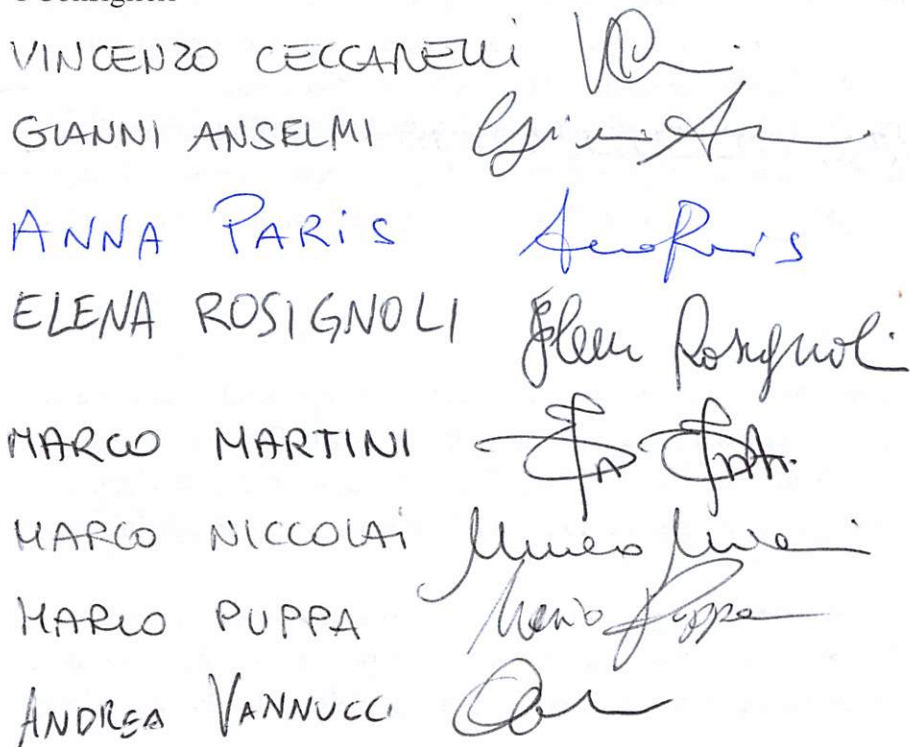 VINCENZO CECCARELLI
GIANNI ANSELMI
ANNA PARiS Anna Paris
ELENA ROSIGNOLI Elena Rosignoli
MARCO MARTINI
MARCO NICCOLAi Marco
MARIO PUPPA Mario Puppa
ANDREA VANNUCCi